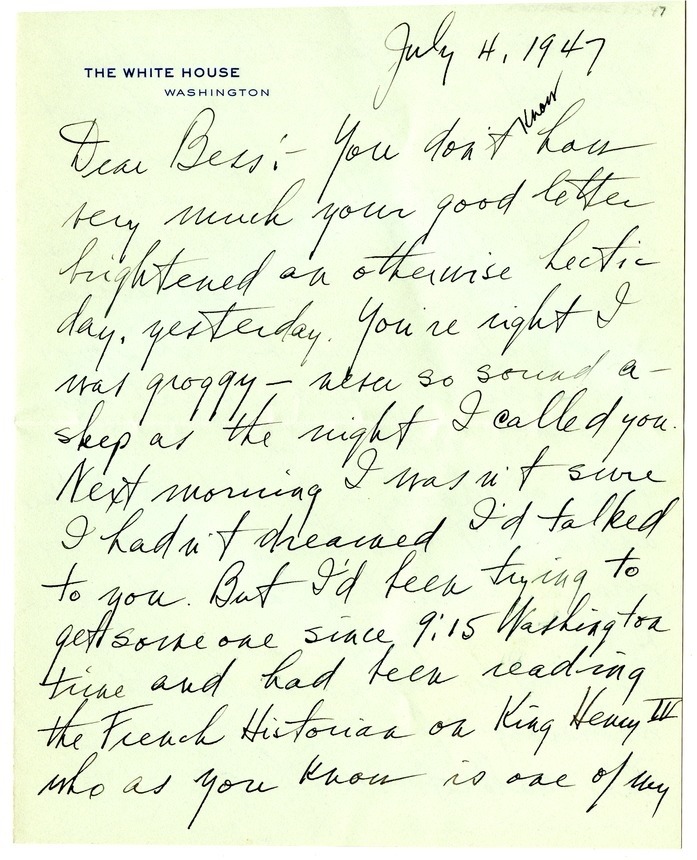 July 4, 1947
THE WHITE HOUSE
WASHINGTON
Dear Bess:- You don't know how
very much your good letter
brightened an otherwise hectic
day, yesterday. You're right I
was groggy – never so sound a-
sleep as the night I called you.
Next morning I wasn't sure
I hadn't dreamed I'd talked
to you. But I'd been trying to
get someone since 9:15 Washington
time and had been reading
the French Historian on King Henry IV
who as you know is one of my